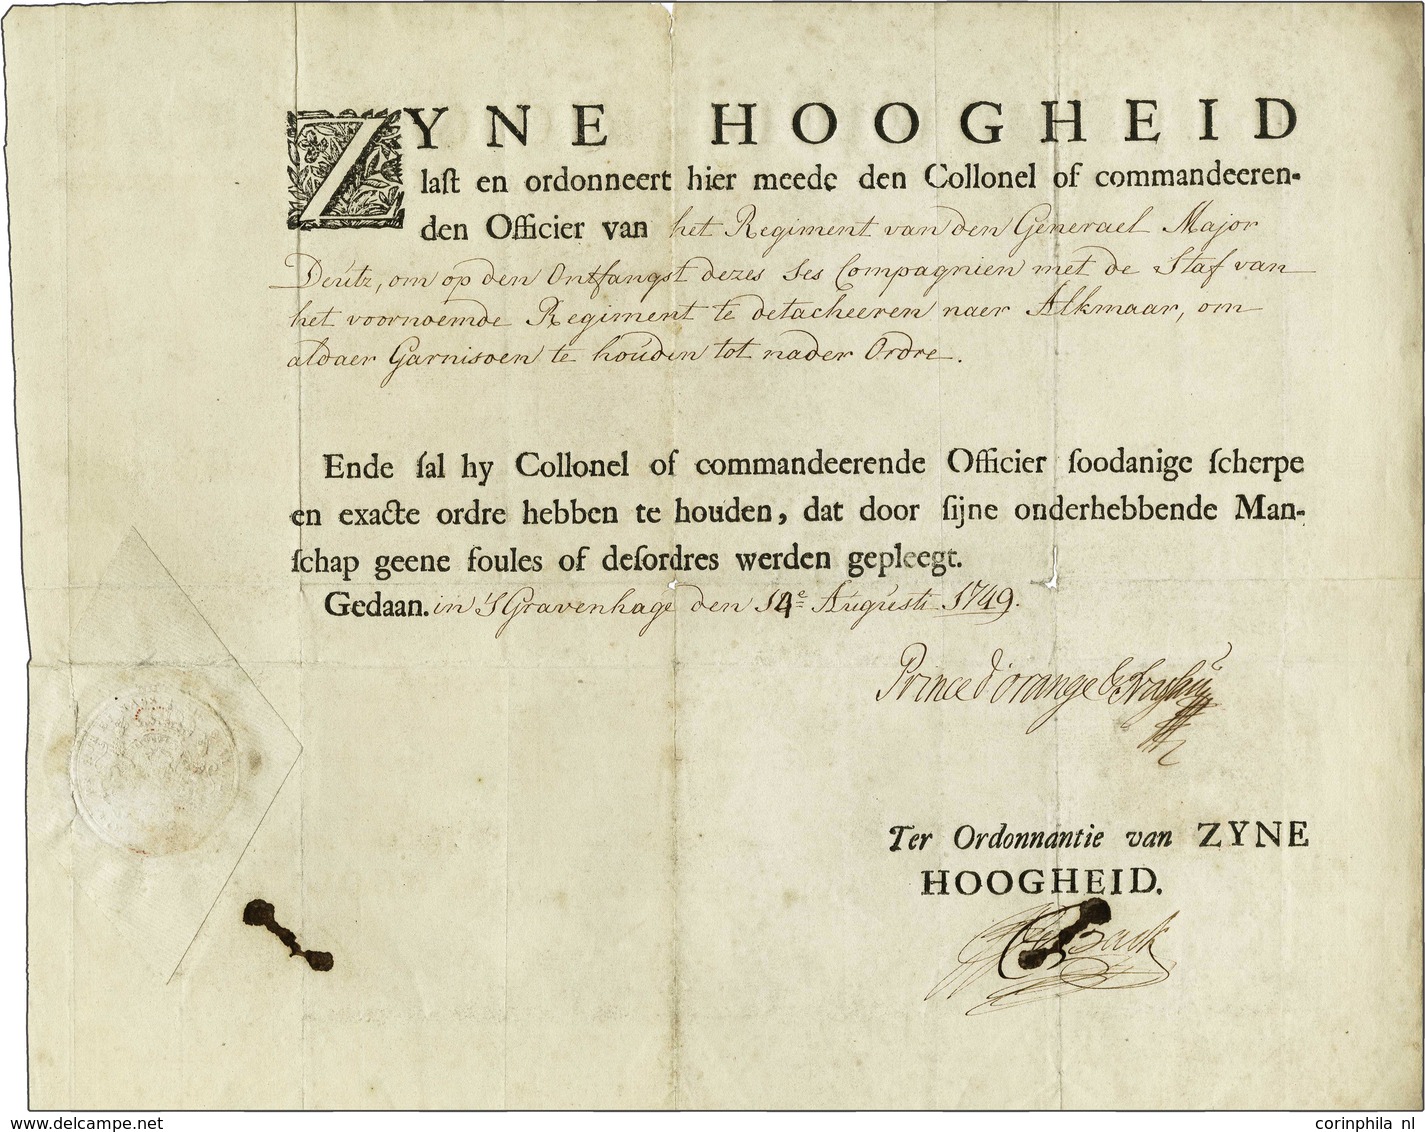 ZYNE HOOGHEID
laſt en ordonneert hier meede den Collonel of commandeeren-
den Officier van het Regiment van den Generael Major
Deütz, om op den Ontfangst dezes Ses Compagnien met de Staf van
het voornoemde Regiment te detacheeren naer Alkmaar, om
aldaer Garnisoen te hoúden tot nader Ordre.
Ende ſal hy Collonel of commandeerende Officier ſoodanige ſcherpe
en exacte ordre hebben te houden, dat door ſijne onderhebbende Man-
ſchap geene foules of deſordres werden gepleegt.
Gedaan. in 'S Gravenhage den 14e Augústi 1749.
Prince d'orange & Nassau
Ter Ordonnantie van ZYNE
HOOGHEID.
www.delcampe.net
corinphila nl